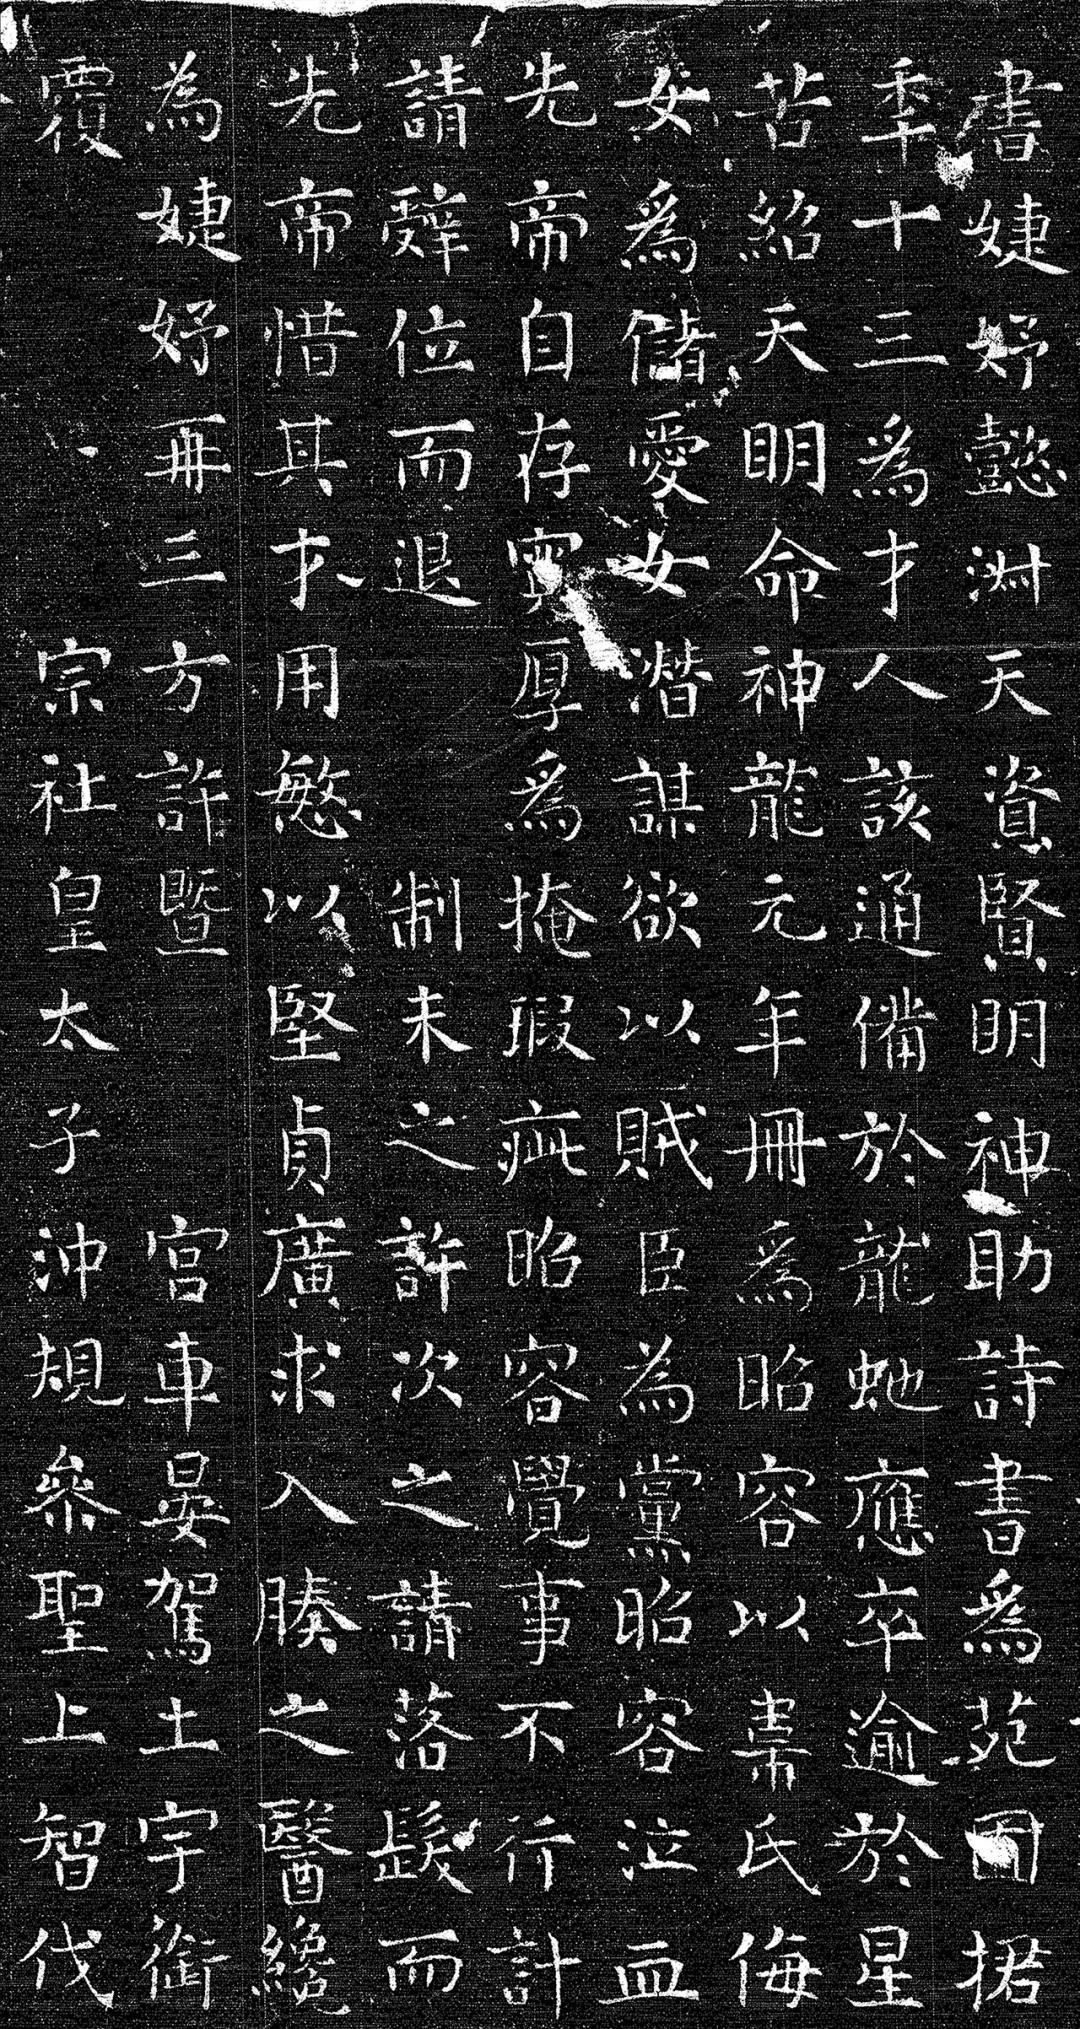 書婕妤懿淋天資賢明神助詩書爲苑囿捃
秊十三爲才人該通備於龍虵應卒逾於星
苦紹天明命神龍元年冊爲昭容以韋氏侮
女爲儲愛女潛謀欲以賊臣為黨昭容泣血
先帝自存寬厚爲掩瑕疵昭容覺事不行計
請辤位而退　制未之許次之請落髮而
先帝惜其才用慜以堅貞廣求入腠之醫纔
為婕妤再三方許暨　宮車晏駕土宇銜
覆　宗社皇太子沖規參聖上智伐